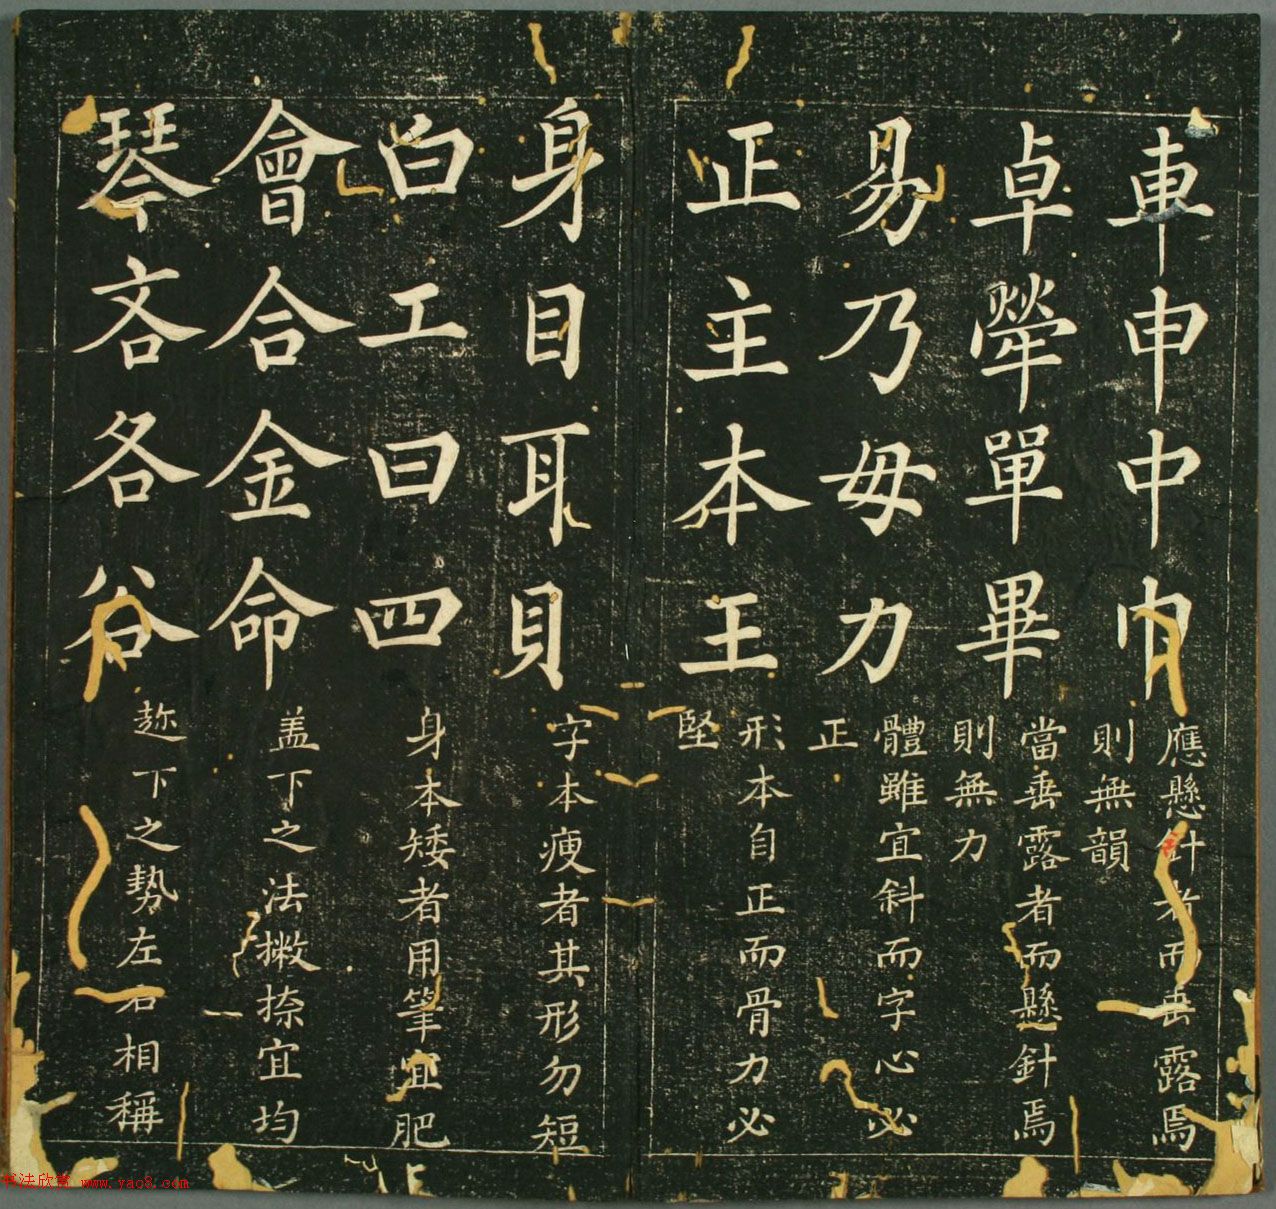 車申中巾
應懸針者而垂露焉
則無韻
卓犖單畢
當垂露者而懸針焉
則無力
易乃毋力
體雖宜斜而字心必
正
正主本王
形本自正而骨力必
堅
身目耳貝
字本瘦者其形勿短
白工曰四
身本矮者用筆宜肥
會合金命
盖下之法撇捺宜均
琴吝各谷
趂下之勢左右相稱
书法欣赏 www.yac8.com